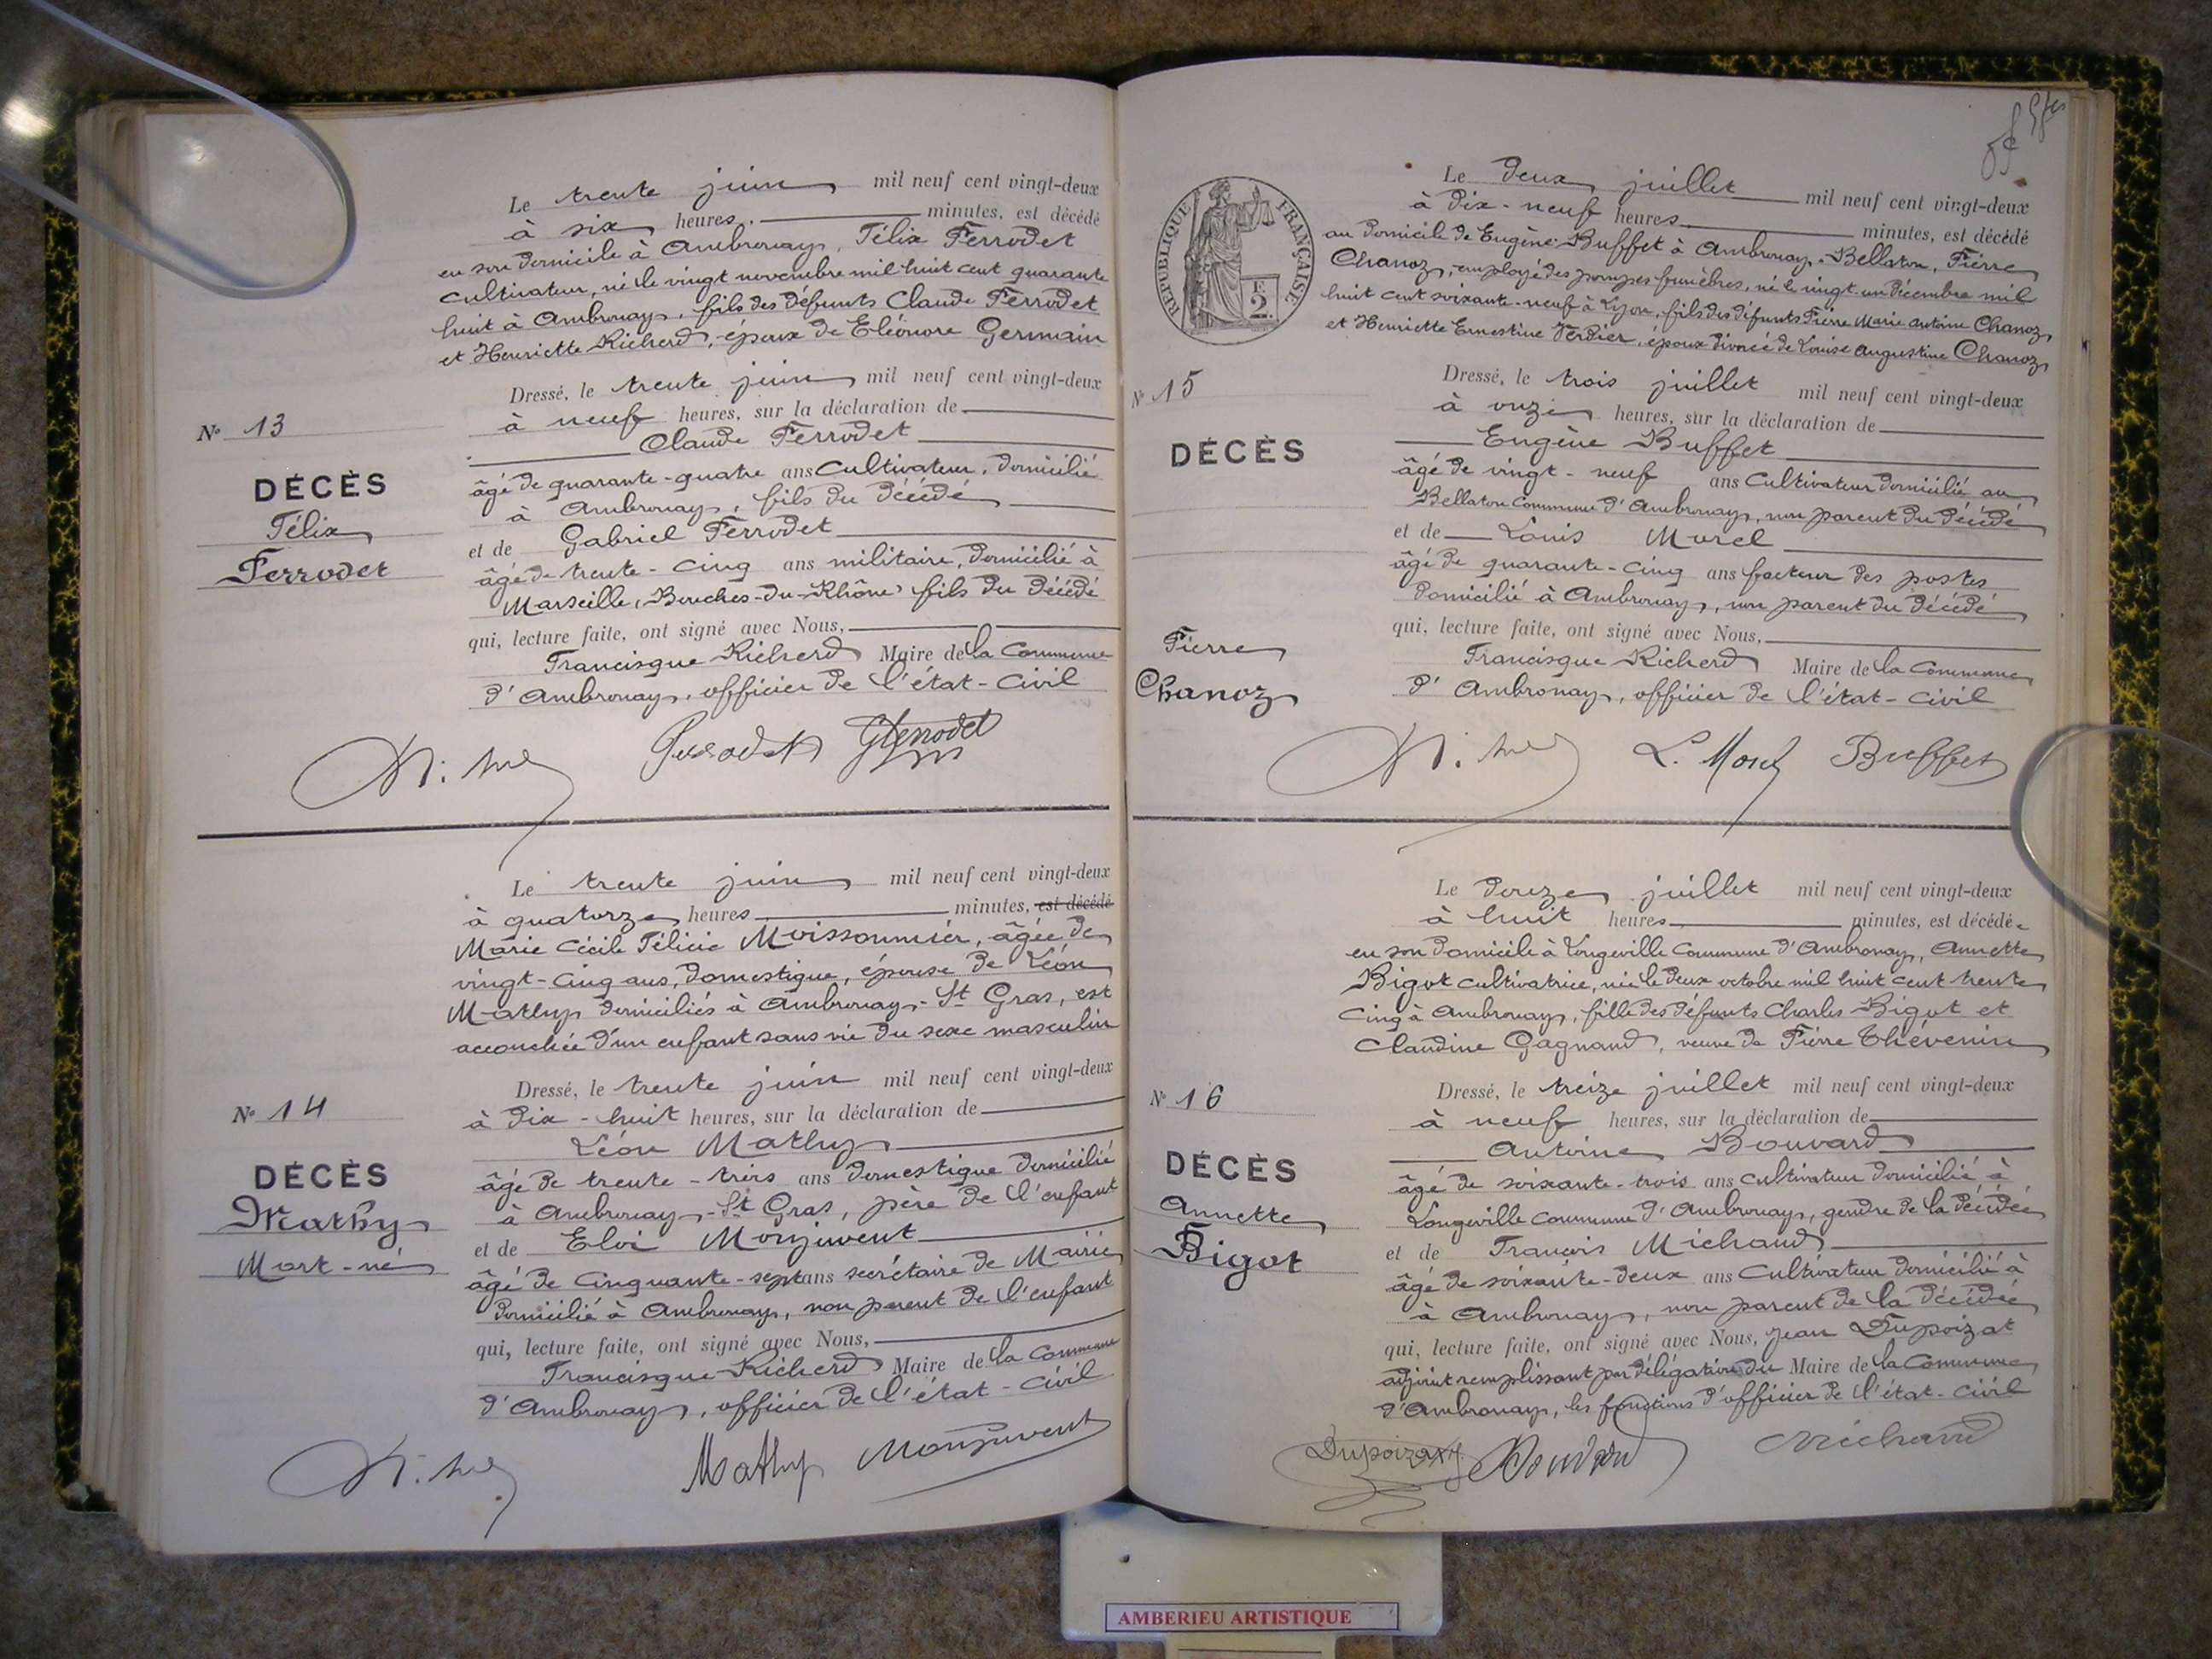 Le trente juin mil neuf cent vingt-deux
à six heures, minutes, est décédé
en son domicile à Ambronay, Félix Ferrodet
cultivateur, né le vingt novembre mil huit cent quarante
huit à Ambronay, fils des défunts Claude Ferrodet
et Henriette Richerd, époux de Eléonore Germain
Dressé, le trente juin mil neuf cent vingt-deux
à neuf heures, sur la déclaration de
Claude Ferrodet
âgé de quarante-quatre ans Cultivateur, domicilié
à Ambronay, fils du décédé
et de Gabriel Ferrodet
âgé de trente-cinq ans militaire, domicilié à
Marseille, (Bouches-du-Rhône) fils du décédé
qui, lecture faite, ont signé avec Nous,
Francisque Richerd Maire de la Commune
d'Ambronay, officier de l'état-civil
Nº 13
DÉCÈS
Félix
Ferrodet
Ferrodet GFerrodet
Le trente juin mil neuf cent vingt-deux
à quatorze heures minutes, est décédé
Marie Cécile Félicie Moissonnier, âgée de
vingt-cinq ans, domestique, épouse de Léon
Mathy domiciliés à Ambronay-St Gras, est
accouchée d'un enfant sans vie du sexe masculin
Dressé, le trente juin mil neuf cent vingt-deux
à dix-huit heures, sur la déclaration de
Léon Mathy
âgé de trente-trois ans domestique domicilié
à Ambronay-St Gras, père de l'enfant
et de Eloi Monjuvent
âgé de cinquante-sept ans secrétaire de Mairie
domicilié à Ambronay, non parent de l'enfant
qui, lecture faite, ont signé avec Nous,
Francisque Richerd Maire de la Commune
d'Ambronay, officier de l'état-civil
Nº 14
DÉCÈS
Mathy
Mort-né
Mathy Monjuvent
RÉPUBLIQUE FRANÇAISE
2F
Le deux juillet mil neuf cent vingt-deux
à dix-neuf heures minutes, est décédé
au domicile de Eugène Buffet à Ambronay-Bellaton, Pierre
Chanoz, employé des pompes funèbres, né le vingt-un décembre mil
huit cent soixante-neuf à Lyon, fils des défunts Pierre Marie Antoine Chanoz
et Henriette Ernestine Verdier, époux divorcé de Louise Augustine Chanoz
Dressé, le trois juillet mil neuf cent vingt-deux
à onze heures, sur la déclaration de
Eugène Buffet
âgé de vingt-neuf ans Cultivateur domicilié au
Bellaton Commune d'Ambronay, non parent du décédé
et de Louis Morel
âgé de quarante-cinq ans facteur des postes
domicilié à Ambronay, non parent du décédé
qui, lecture faite, ont signé avec Nous,
Francisque Richerd Maire de la Commune
d'Ambronay, officier de l'état-civil
Nº 15
DÉCÈS
Pierre
Chanoz
L. Morel Buffet
Le douze juillet mil neuf cent vingt-deux
à huit heures minutes, est décédée
en son domicile à Longeville Commune d'Ambronay, Annette
Bigot cultivatrice, née le deux octobre mil huit cent trente
cinq à Ambronay, fille des défunts Charles Bigot et
Claudine Gagnand, veuve de Pierre Thévenin
Dressé, le treize juillet mil neuf cent vingt-deux
à neuf heures, sur la déclaration de
Antoine Bouvard
âgé de soixante-trois ans cultivateur domicilié à
Longeville Commune d'Ambronay, gendre de la décédée
et de François Michaud
âgé de soixante-deux ans Cultivateur domicilié à
à Ambronay, non parent de la décédée
qui, lecture faite, ont signé avec Nous, Jean Dupoizat
adjoint remplissant par délégation du Maire de la Commune
d'Ambronay, les fonctions d'officier de l'état-civil
Nº 16
DÉCÈS
Annette
Bigot
Dupoizat Bouvard Michaud
AMBERIEU ARTISTIQUE